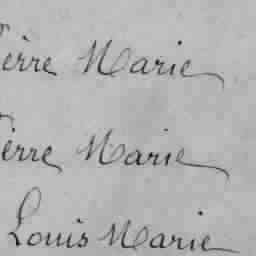 ierre Marie
ierre Marie
Louis Marie